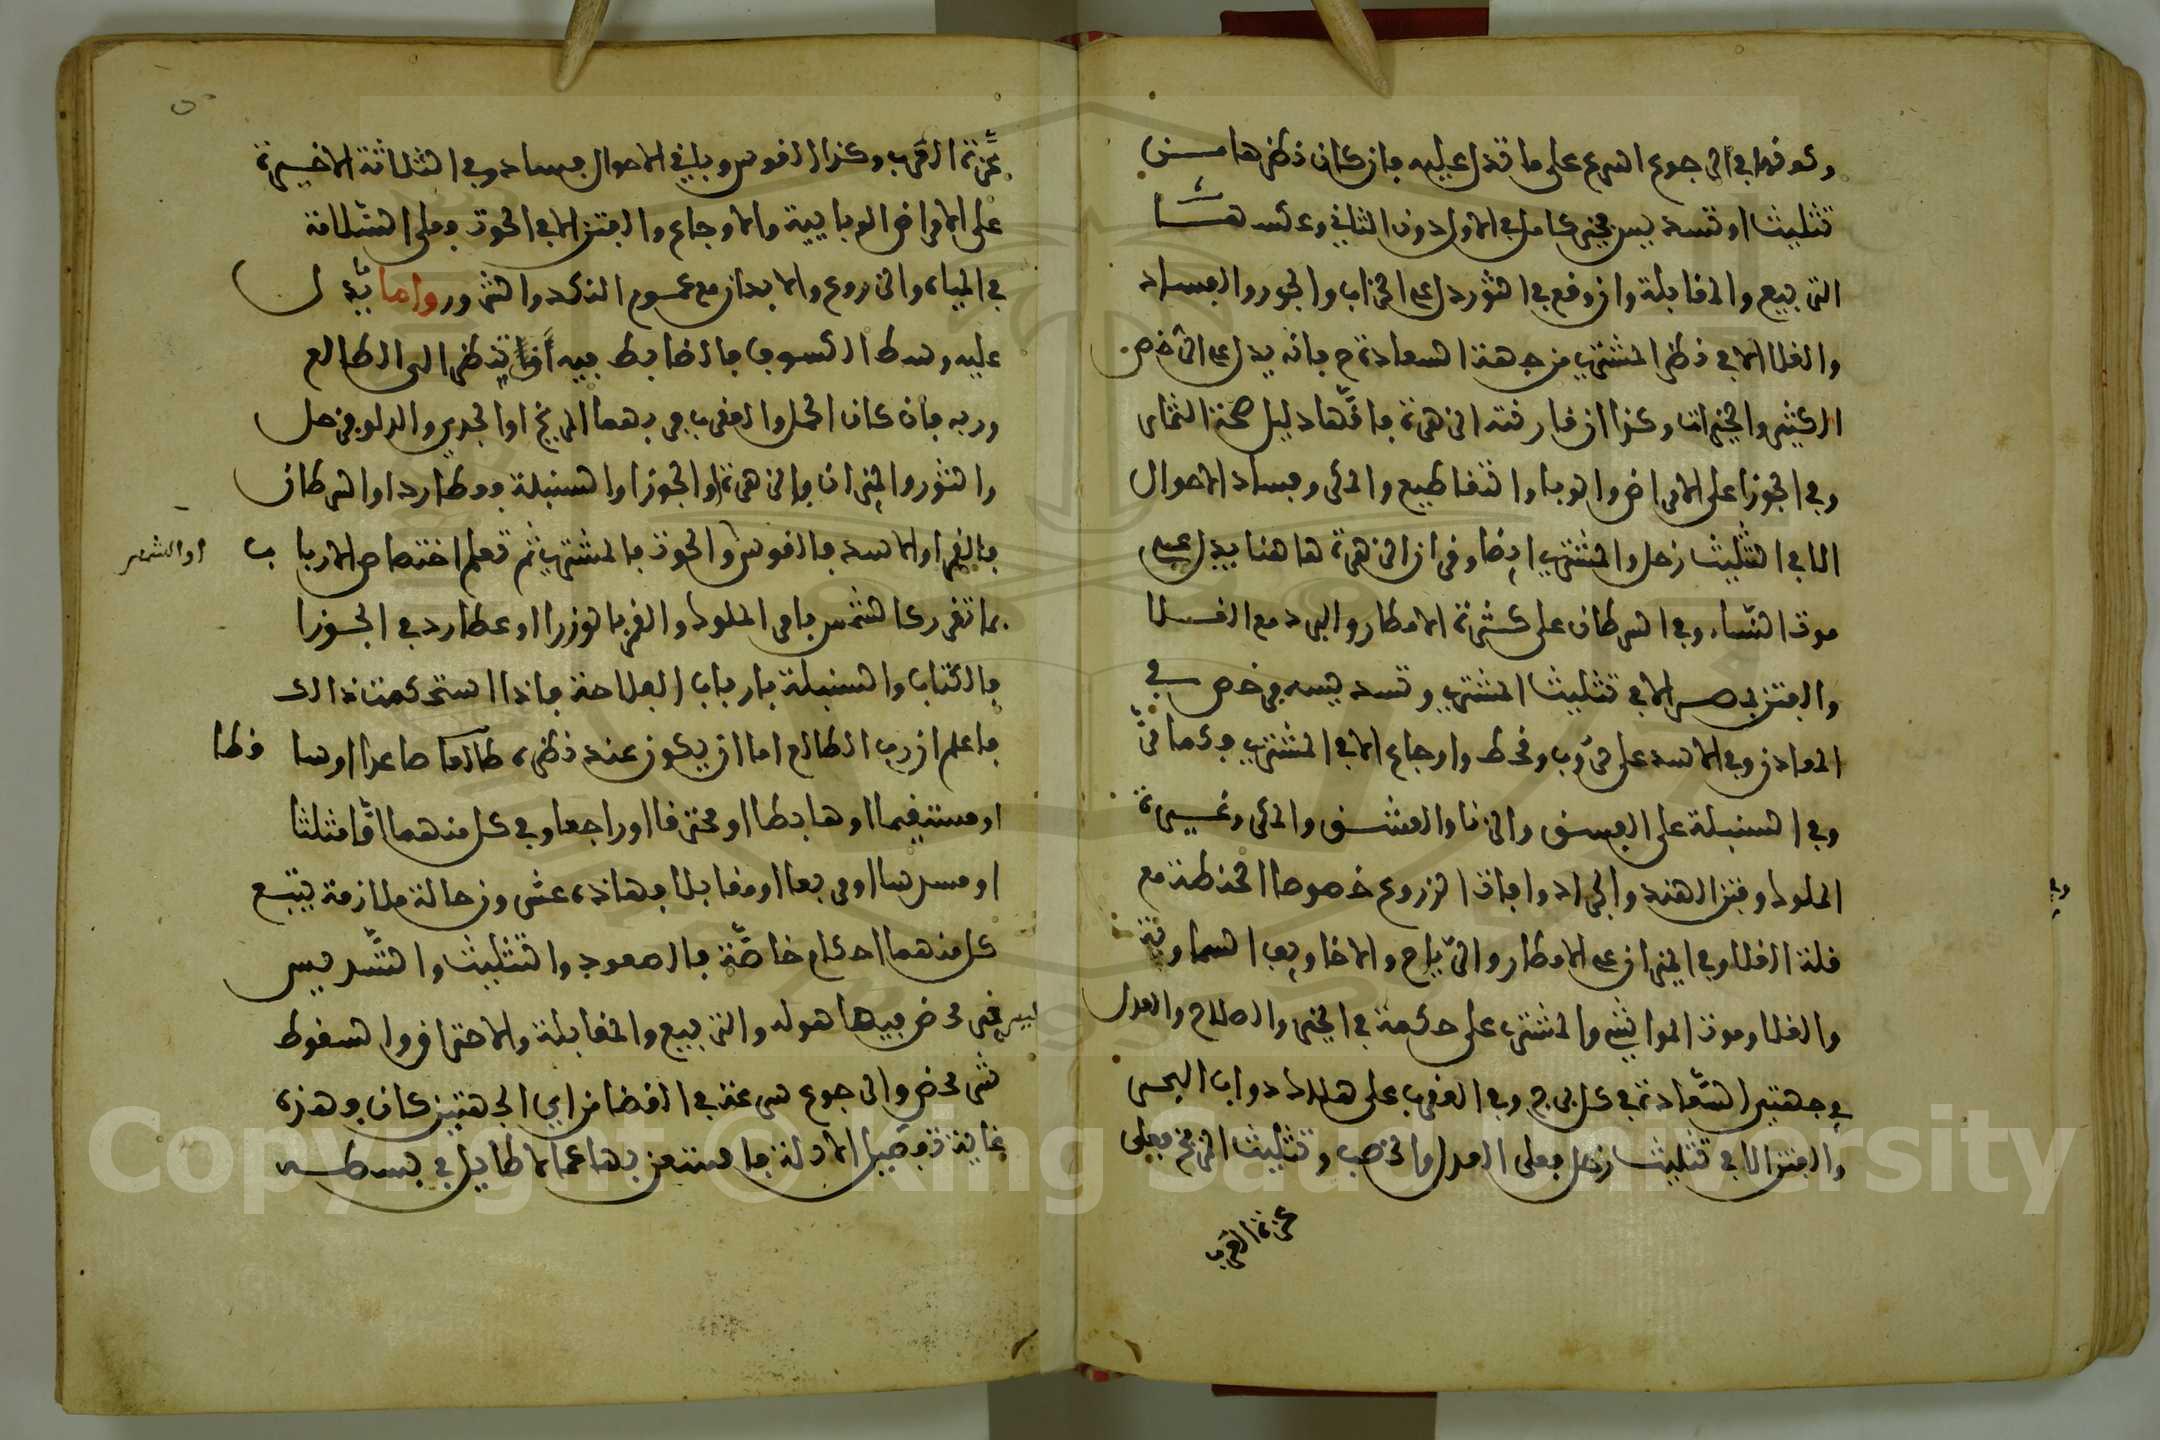 وكوفها في الرجوع اسرع على ما تدل عليه فان كان نظرها من
تثليث او تسديس فخير كامل في الاول دون الثاني وعكسهما
التربيع والمقابلة وان وقع في الثور دل على الخراب والجور والفساد
والغلا الا في نظر المشتري من جهة السعادة ح فانه يدل على الرخص
الكثير والخيرات وكذا ان قارنته الزهرة فانها دليل صحة الثمار
وفي الجوزا على الامراض والوبا والتقاطيع والمكر وفساد الاحوال
الا في التثليث زحل والمشتري ايضا وقران الزهرة هاهنا يدل على
موت النساء وفي السرطان على كثرة الامطار والبرد مع الغلا
والفتن بمصر الا في تثليث المشتري وتسديسه فرخص في
المعادن وفي الاسد على حروب وقحط واوجاع الا في المشتري فكما مر
وفي السنبلة على الفسق والزنا والعشق والمكر وغيرة
الملوك وفتن الهند والجراد وافات الزروع خصوصا الحنطة مع
قلة الغلا وفي الميزان على الامطار والرياح والاخاويف السماوية
والغلا وموت المواشي والمشتري على حكمه في الخير والصلاح والعدل
في جهتي السعادة في كل برج وفي العقرب على هلاك دواب البحر
والفتن الا في تثليث زحل فعلى العدل والخصب وتثليث المريخ فعلى
عزة العرب
وفي
عزة العرب وكذا القوس وباقي الاحوال فساد وفي الثلاثة الاخيرة
على الامراض الوبايية والاوجاع والفتن الا في الحوت فعلى السلامة
في المياه والزروع والابدان مع عموم النكد والشرور واما يدل
عليه وسط الكسوف فالضابط فيه انا ننظر الى الطالع
وربه فان كان الحمل والعقرب فربهما المريخ او الجدي والدلو فزحل
والثور والميزان فالزهرة او الجوزا والسنبلة فعطارد او السرطان
فالقمر او الاسد فالقوس والحوت فالمشتري ثم تعلم اختصاص الارباب
او الشمس
بما تقرر كالشمس بامر الملوك والقمر بالوزرا او عطارد في الجوزا
بالكتاب والسنبلة بارباب الفلاحة فاذا استحكمت ذالك
فاعلم ان رب الطالع اما ان يكون عند نظره طالعا صاعدا او ساقطا
او مستقيما او هابطا او محترقا او راجعا وفي كل منهما اما مثلثا
او مسدسا او مربعا او مقابلا فهاذه عشرون حالة ملازمة يتبع
كل منهما احكام خاصة فالصعود والتثليث والتسديس
خير محض فيها هوله والتربيع والمقابلة والاحتراق والسقوط
شر محض والرجوع سرعة في القضا من اي الجهتين كان فهذه
غاية تفصيل الادلة فاستغن بها عما لا طايل في بسطه